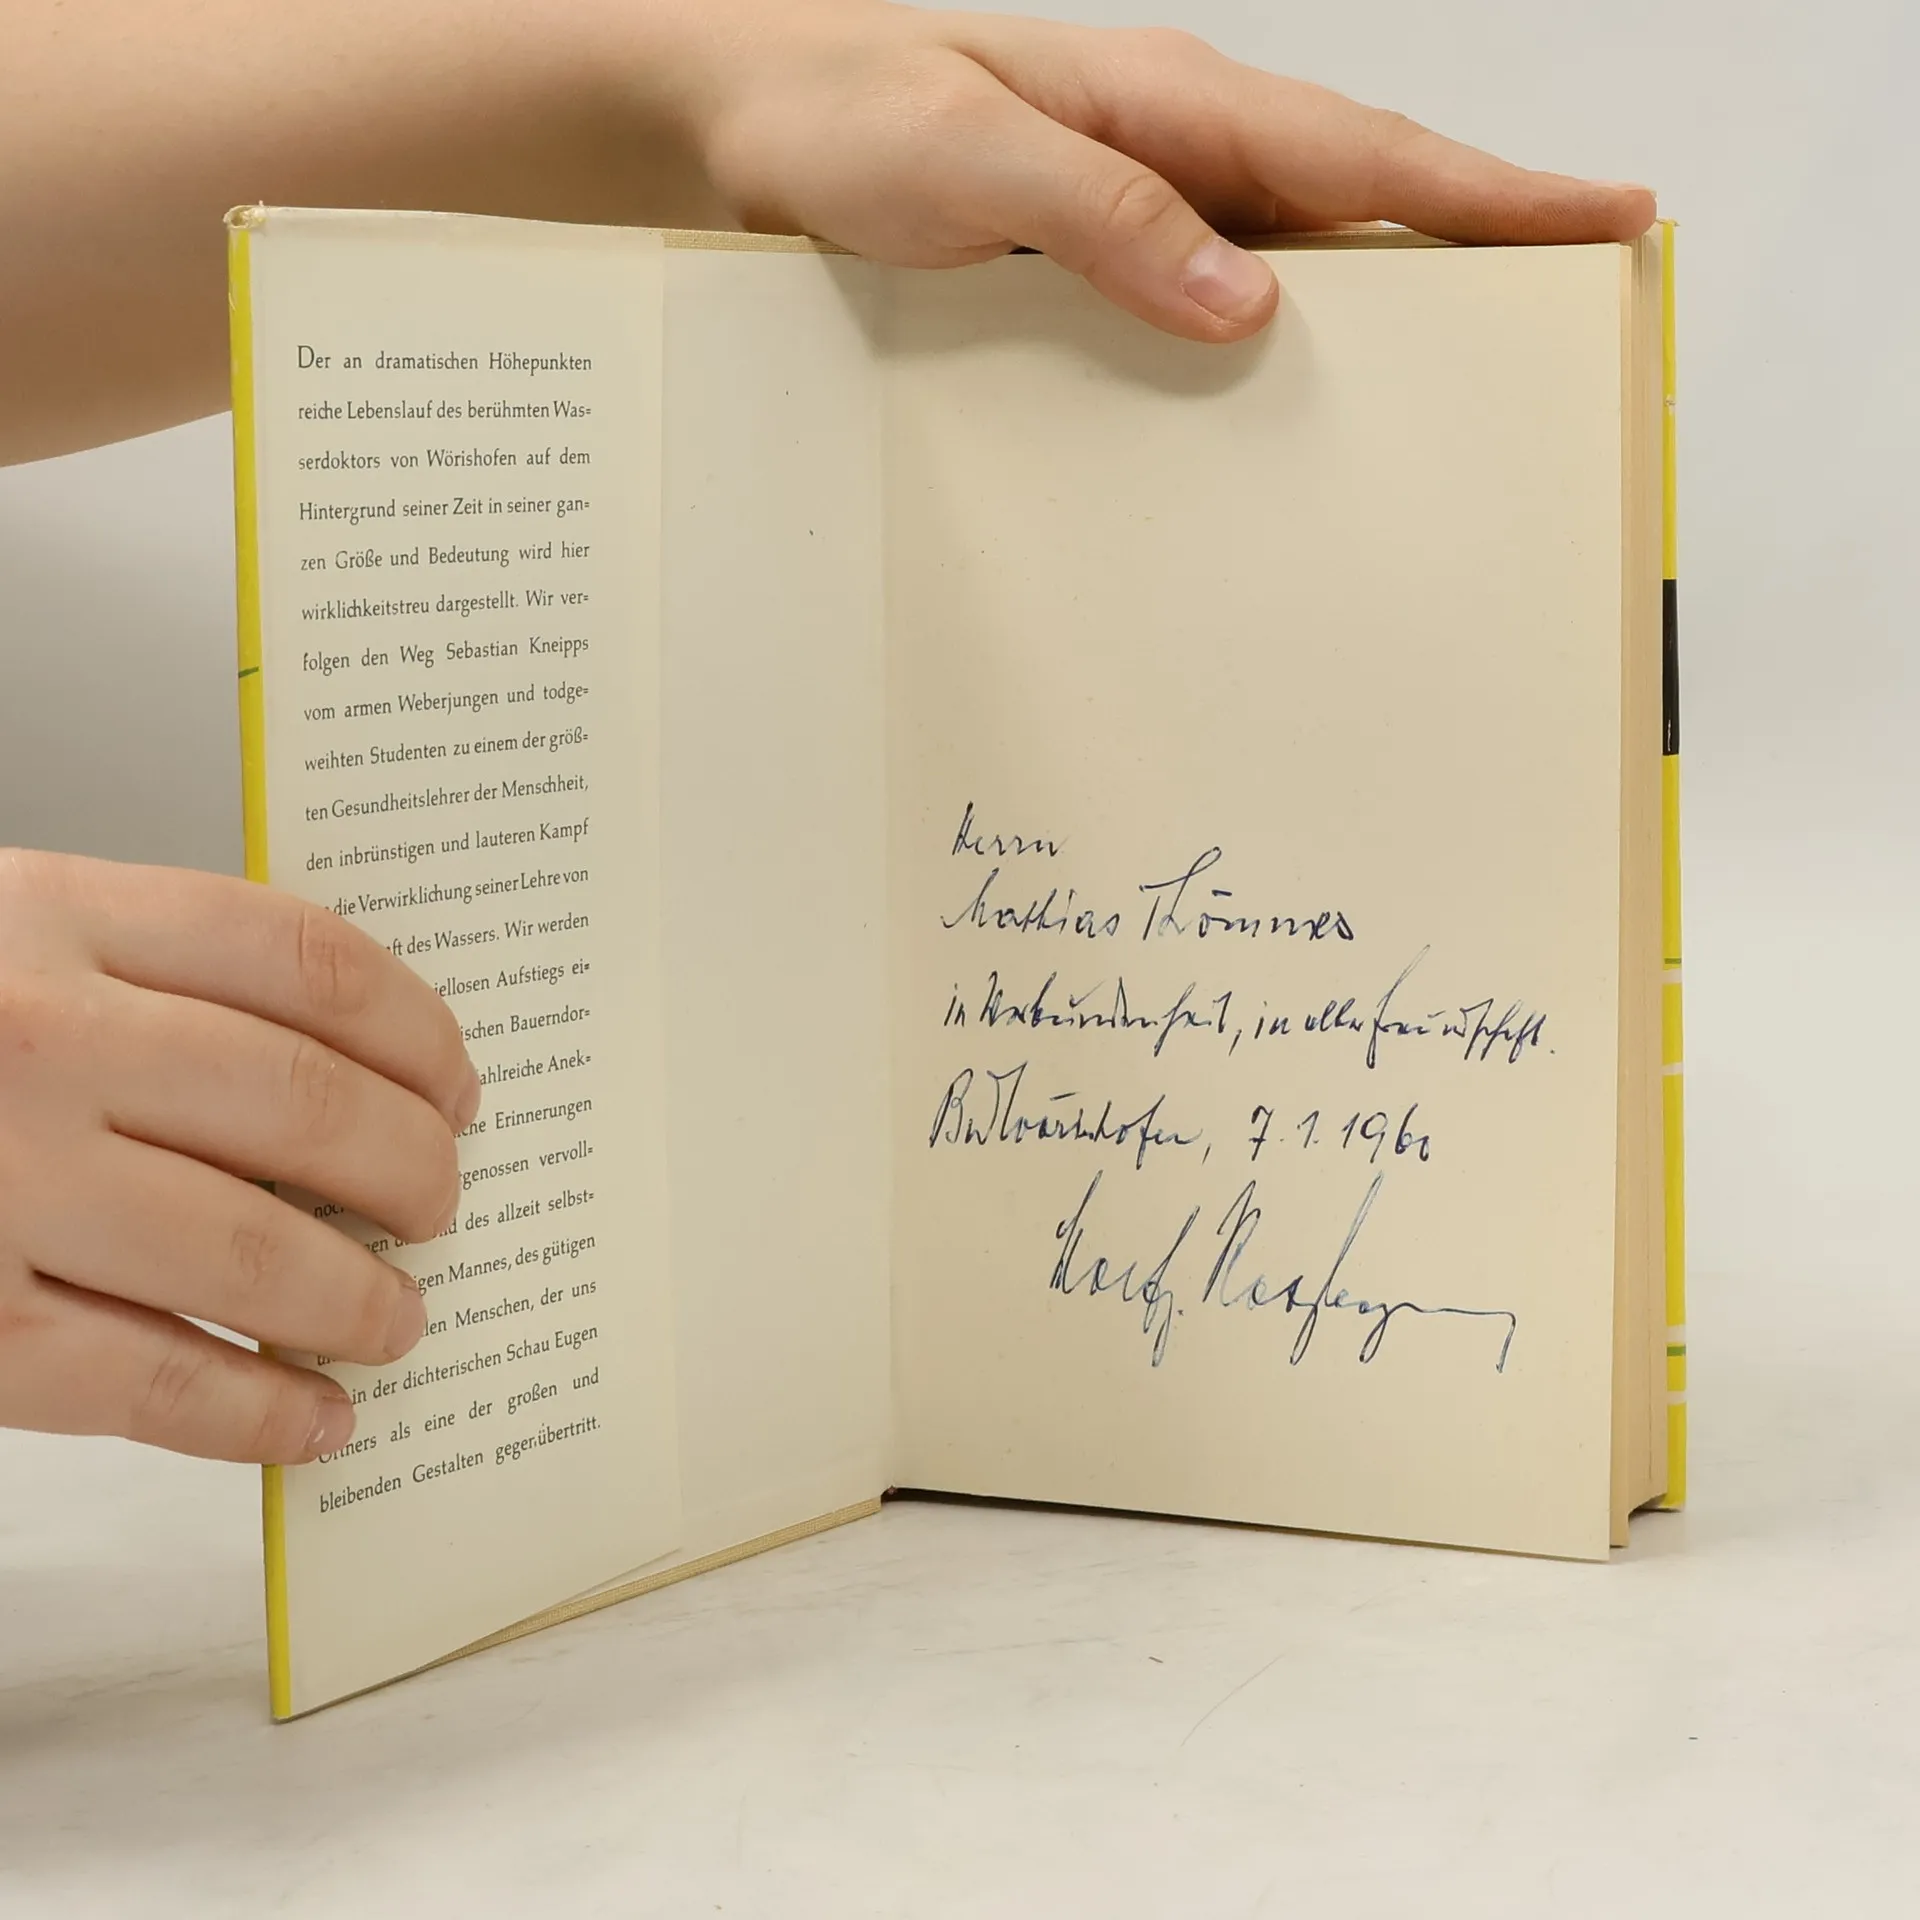 Der an dramatischen Höhepunkten
reiche Lebenslauf des berühmten Was=
serdoktors von Wörishofen auf dem
Hintergrund seiner Zeit in seiner gan=
zen Größe und Bedeutung wird hier
wirklichkeitstreu dargestellt. Wir ver=
folgen den Weg Sebastian Kneipps
vom armen Weberjungen und todge=
weihten Studenten zu einem der größ=
ten Gesundheitslehrer der Menschheit,
den inbrünstigen und lauteren Kampf
die Verwirklichung seiner Lehre von
des Wassers. Wir werden
Aufstiegs ei=
Bauerndor=
Anek=
Erinnerungen
vervoll=
des allzeit selbst=
Mannes, des gütigen
Menschen, der uns
in der dichterischen Schau Eugen
als eine der großen und
bleibenden Gestalten gegenübertritt.
Herrn
Mathias Thömmes
in Verbundenheit, in alter Freundschaft.
Bad Wörishofen, 7.1.1960